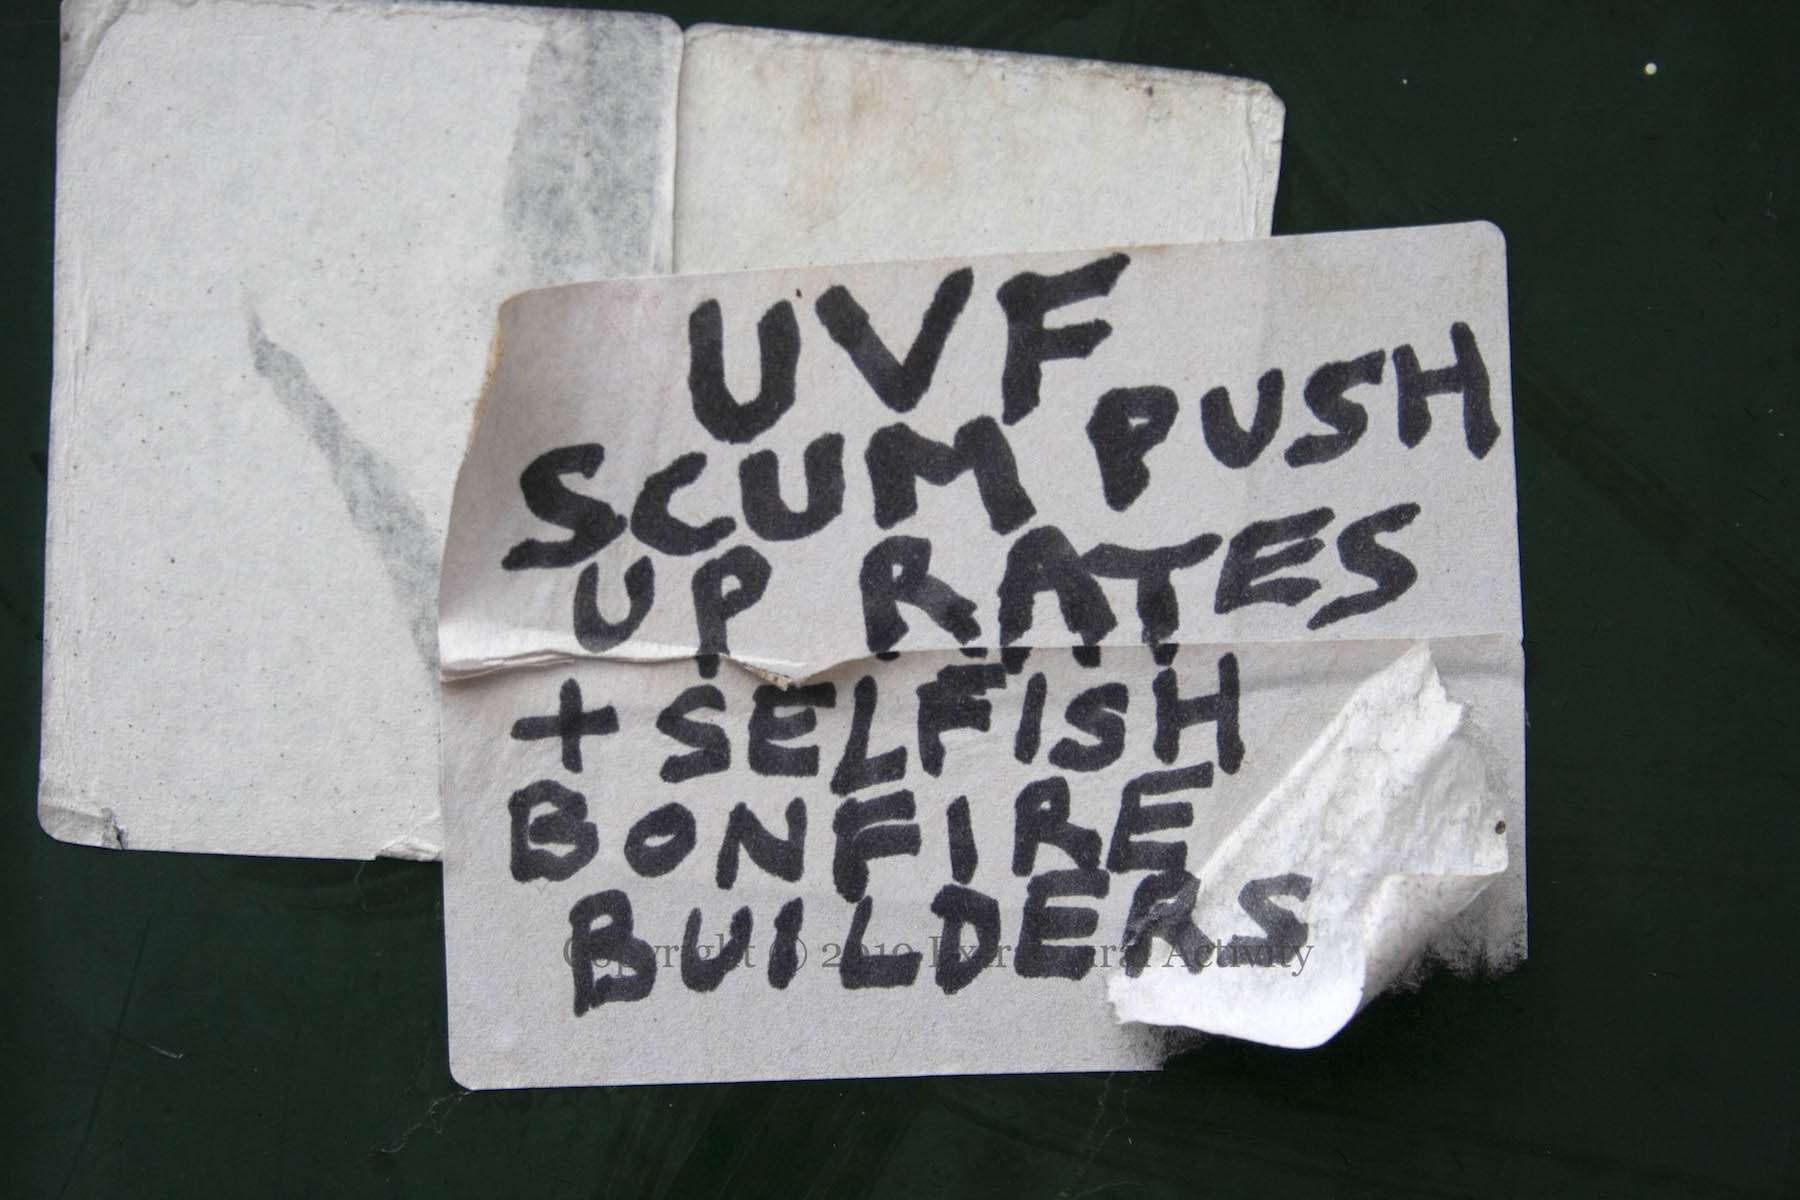 UVF
SCUM PUSH
UP RATES
+ SELFISH
BONFIRE
BUILDERS
Copyright © 2019 Extramural Activity